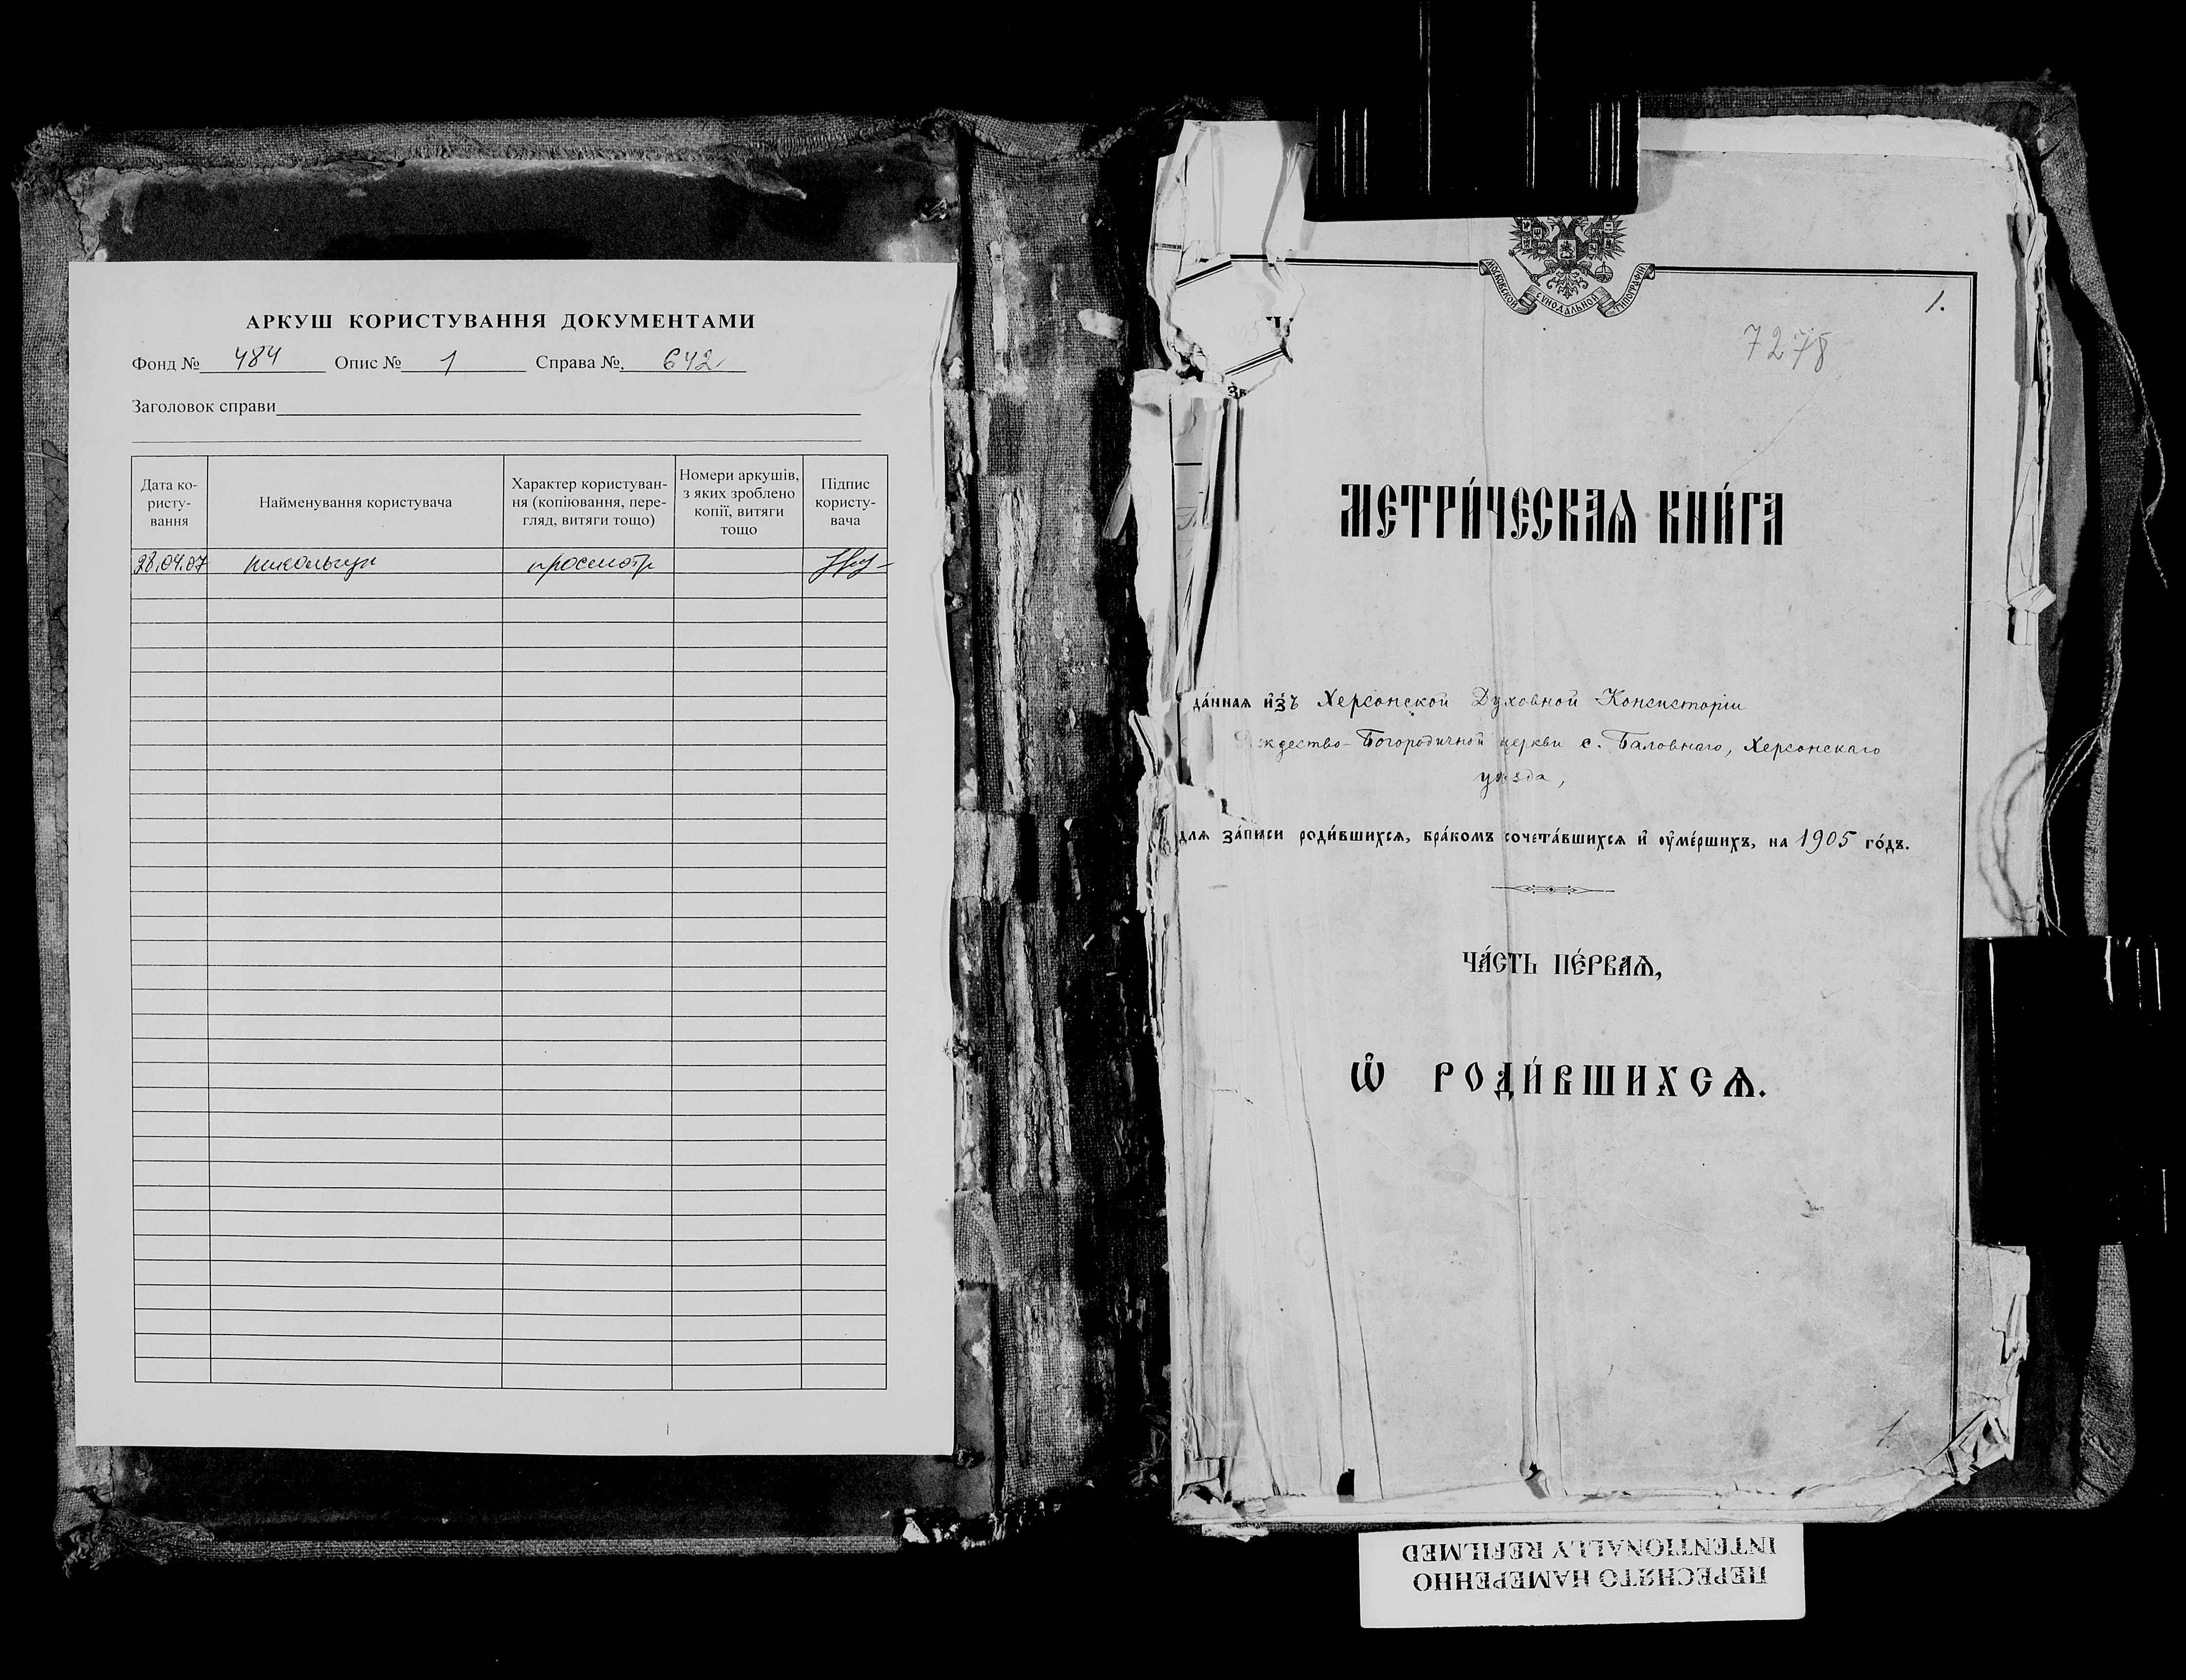 АРКУШ КОРИСТУВАННЯ ДОКУМЕНТАМИ
Фонд № 484 Опис № 1 Справа №. 642
Заголовок справи
Дата ко-
ристу-
вання
Найменування користувача
Характер користуван-
ня (копіювання, пере-
гляд, витяги тощо)
Номери аркушів,
з яких зроблено
копії, витяги
тощо
Підпис
користу-
вача
28.04.07 просмотр
МОСКОВСКОЙ СУНОДАЛЬНОЙ ТИПОГРАФІИ
1.
7278
МЕТРИ́ЧЕСКАѦ КНИ́ГА
да́ннаѧ и҆зъ Херсонской Духовной Консисторіи
ждество-Богородичной церкви с. Баловнаго, Херсонскаго
уѣзда,
длѧ за́писи роди́вшихсѧ, бра́комъ сочета́вшихсѧ и҆ ᲂу҆ме́ршихъ, на 1905 го́дъ.
ЧА́СТЬ ПЕ́РВАѦ,
Ѽ РОДИ́ВШИХСѦ.
1.
ПЕРЕСНЯТО НАМЕРЕННО
INTENTIONALLY REFILMED